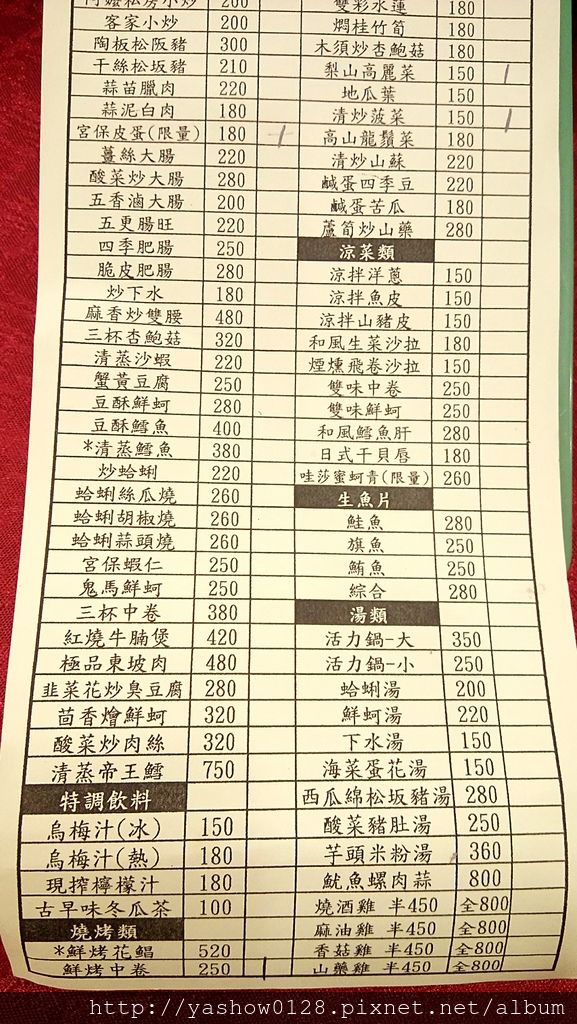 阿嬤私房小炒 200
客家小炒 200
陶板松阪豬 300
干絲松坂豬 210
蒜苗臘肉 220
蒜泥白肉 180
宮保皮蛋(限量) 180
薑絲大腸 220
酸菜炒大腸 280
五香滷大腸 200
五更腸旺 220
四季肥腸 250
脆皮肥腸 280
炒下水 180
麻香炒雙腰 480
三杯杏鮑菇 320
清蒸沙蝦 220
蟹黃豆腐 250
豆酥鮮蚵 280
豆酥鱈魚 400
*清蒸鱈魚 380
炒蛤蜊 220
蛤蜊絲瓜燒 260
蛤蜊胡椒燒 260
蛤蜊蒜頭燒 260
宮保蝦仁 250
鬼馬鮮蚵 250
三杯中卷 380
紅燒牛腩煲 420
極品東坡肉 480
韭菜花炒臭豆腐 280
茴香燴鮮蚵 320
酸菜炒肉絲 320
清蒸帝王鱈 750
特調飲料
烏梅汁(冰) 150
烏梅汁(熱) 180
現搾檸檬汁 180
古早味冬瓜茶 100
燒烤類
*鮮烤花鯧 520
鮮烤中卷 250
雙彩水蓮 180
燜桂竹筍 180
木須炒杏鮑菇 180
梨山高麗菜 150
地瓜葉 150
清炒菠菜 150
高山龍鬚菜 180
清炒山蘇 220
鹹蛋四季豆 220
鹹蛋苦瓜 180
蘆筍炒山藥 280
涼菜類
涼拌洋蔥 150
涼拌魚皮 150
涼拌山豬皮 150
和風生菜沙拉 180
煙燻飛卷沙拉 150
雙味中卷 250
雙味鮮蚵 250
和風鱈魚肝 280
日式干貝唇 180
哇莎蜜蚵青(限量) 260
生魚片
鮭魚 280
旗魚 250
鮪魚 250
綜合 280
湯類
活力鍋-大 350
活力鍋-小 250
蛤蜊湯 200
鮮蚵湯 220
下水湯 150
海菜蛋花湯 150
西瓜綿松坂豬湯 280
酸菜豬肚湯 250
芋頭米粉湯 360
魷魚螺肉蒜 800
燒酒雞 半450 全800
麻油雞 半450 全800
香菇雞 半450 全800
山藥雞 半450 全800
http://yashow0128.pixnet.net/album